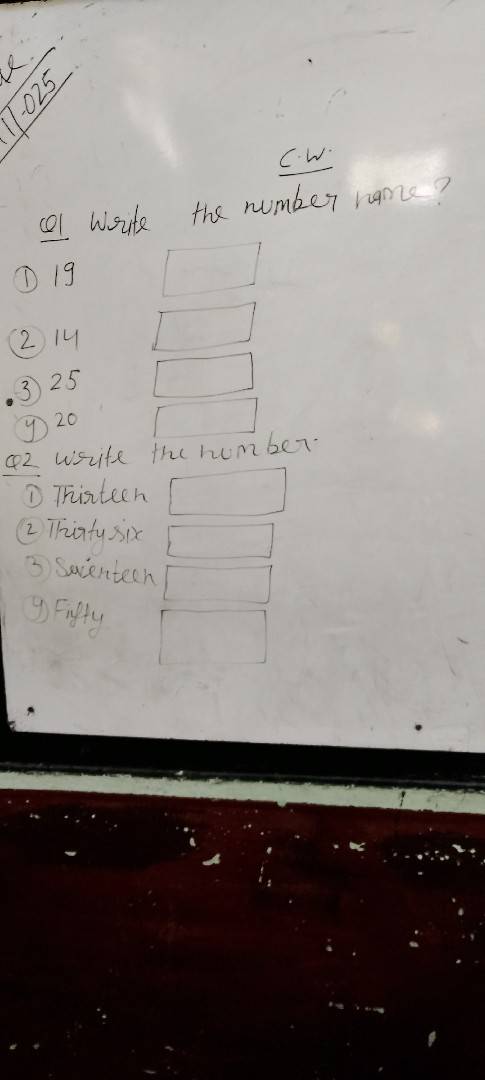 11-025
C.W.
Q1 Write the number name?
① 19
② 14
③ 25
④ 20
Q2 Write the number.
① Thirteen
② Thirty six
③ Seventeen
④ Fifty